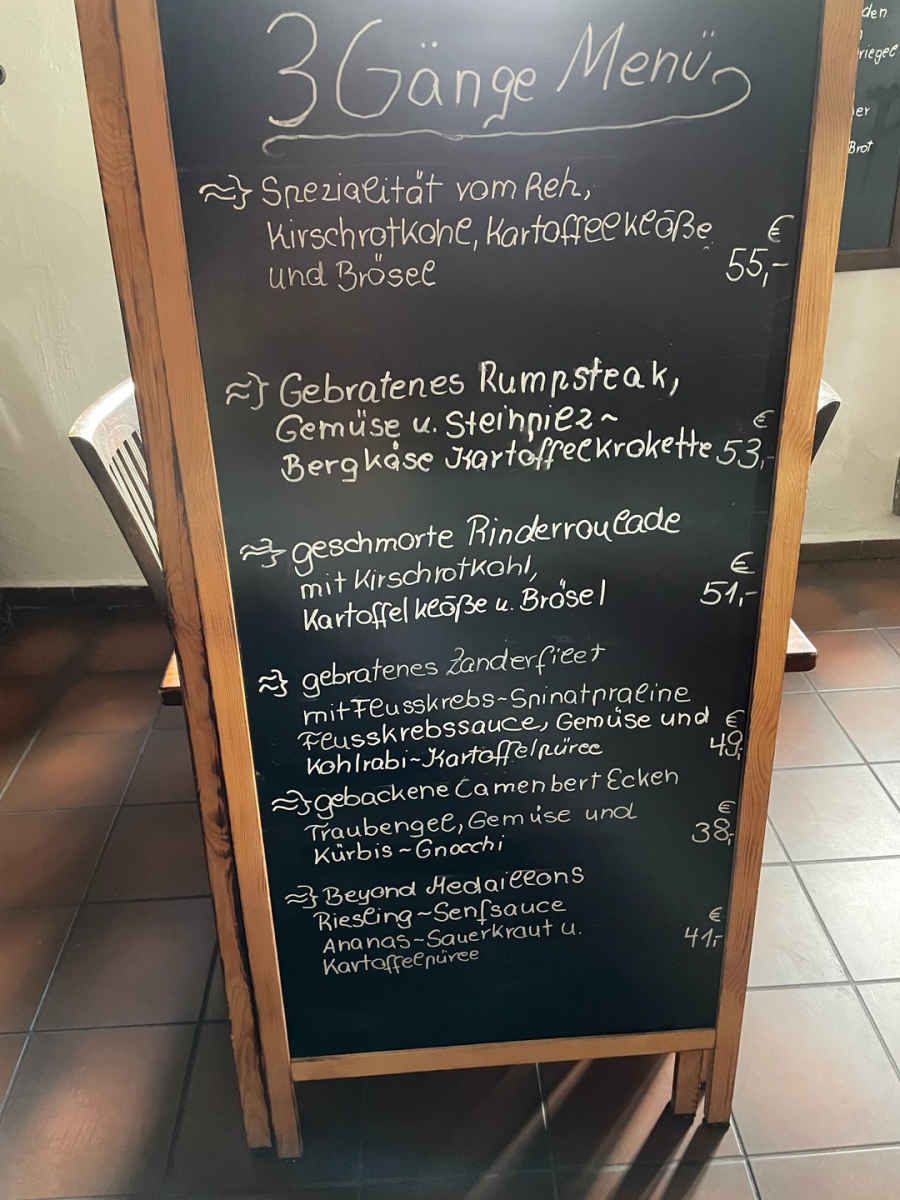 3 Gänge Menü
Spezialität vom Reh,
Kirschrotkohl, Kartoffelklöße
und Brösel
€
55,-
Gebratenes Rumpsteak,
Gemüse u. Steinpilz~
Bergkäse Kartoffelkrokette
€
53,-
geschmorte Rinderroulade
mit Kirschrotkohl,
Kartoffelklöße u. Brösel
€
51,-
gebratenes Zanderfilet
mit Flusskrebs~Spinatpraline
Flusskrebssauce, Gemüse und
Kohlrabi~Kartoffelpüree
€
49,
gebackene Camenbert Ecken
Traubengel, Gemüse und
Kürbis~Gnocchi
€
38,-
Beyond Medaillons
Riesling~Senfsauce
Ananas~Sauerkraut u.
Kartoffelpüree
€
41,-
den
er
Brot